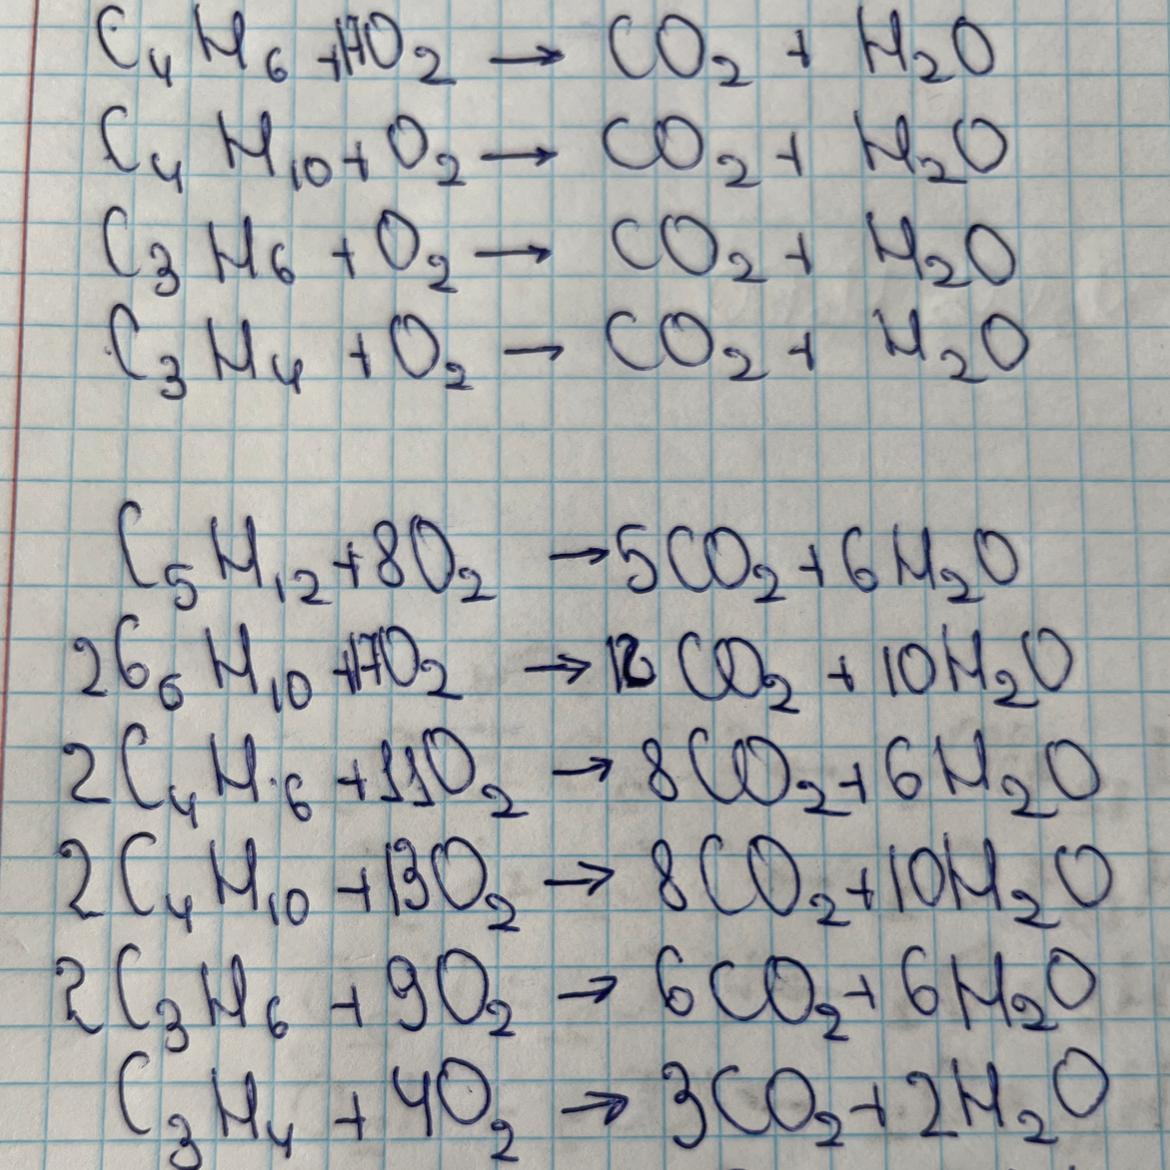 C₄H₆ + 17O₂ → CO₂ + H₂O
C₄H₁₀ + O₂ → CO₂ + H₂O
C₃H₆ + O₂ → CO₂ + H₂O
C₃H₄ + O₂ → CO₂ + H₂O
C₅H₁₂ + 8O₂ → 5CO₂ + 6H₂O
2C₆H₁₀ + 17O₂ → 12CO₂ + 10H₂O
2C₄H₆ + 11O₂ → 8CO₂ + 6H₂O
2C₄H₁₀ + 13O₂ → 8CO₂ + 10H₂O
2C₃H₆ + 9O₂ → 6CO₂ + 6H₂O
C₃H₄ + 4O₂ → 3CO₂ + 2H₂O